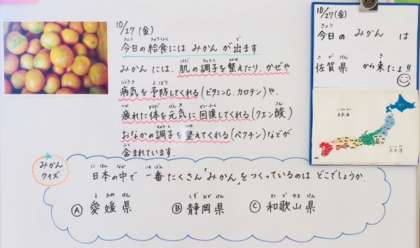 10/27(金)
今日の給食には みかんが出ます
みかんには、肌の調子を整えたり、かぜや
病気を予防してくれる(ビタミンC、カロテン)や、
疲れた体を元気に回復してくれる(クエン酸)
おなかの調子を整えてくれる(ペクチン)などが
含まれています
10/27(金)
今日の みかん は
佐賀県 から来たよ!
みかん
クイズ
日本の中で 一番 たくさん"みかん"をつくっているのは どこでしょうか。
Ⓐ 愛媛県 Ⓑ 静岡県 Ⓒ 和歌山県